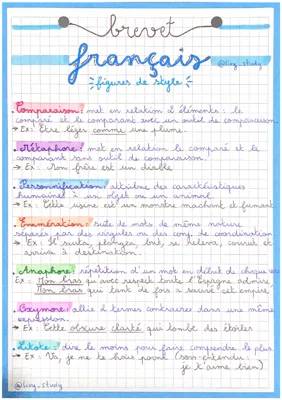 brevet
français
@lizy_study
figures de style
Comparaison : met en relation 2 éléments : le
comparé et le comparant avec un outil de comparaison.
→ Ex : Être léger comme une plume.
Métaphore : met en relation le comparé et le
comparant sans outil de comparaison.
→ Ex : Mon frère est un diable
Personnification : attribue des caractéristiques
humaines à un objet ou un animal.
→ Ex : Cette usine est un monstre machant et fumant
Enumération : suite de mots de même nature
séparés par des virgules ou des conj. de coordination
→ Ex : Il suita, plongea, but, se releva, courut et
arriva à destination.
Anaphore : répétition d'un mot en début de chaque vers
Ex : Mon bras qui avec respect toute l'Espagne admire,
Mon bras qui tant de fois a sauvé cet empire,
Oxymore : allie 2 termes contraires dans une même
expression.
→ Ex : Cette obscure clarté qui tombe des étoiles
Litote : dire le moins pour faire comprendre le plus.
→ Ex : Va, je ne te hais point (sous-entendu :
je t'aime bien)
@lizy_study